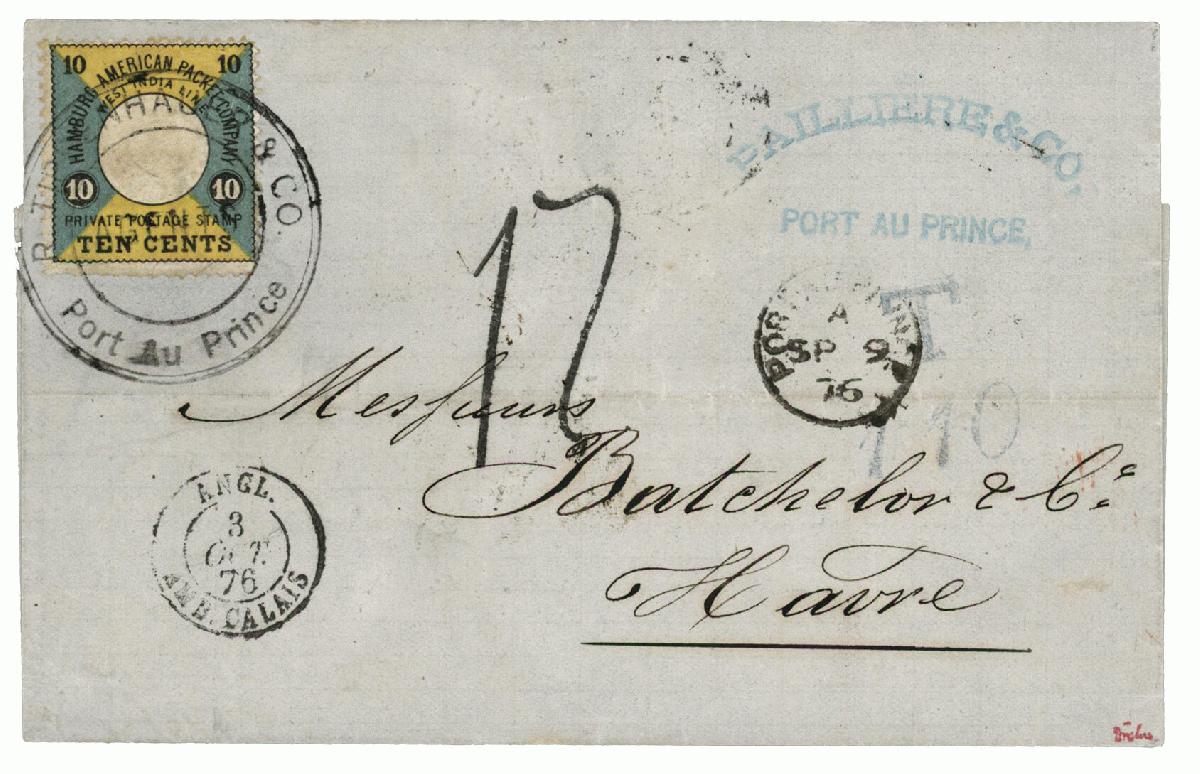 10 10
HAMBURG AMERICAN PACKET COMPANY
WEST INDIA LINE
10 10
PRIVATE POSTAGE STAMP
TEN CENTS
& CO.
AGENTS
Port Au Prince
BAILLIERE & CO,
PORT AU PRINCE,
T
1 10
PORT AU PRINCE
A
SP 9
76
12
Messieurs
Batchelor & Cie
Havre
ANGL.
3
OCT.
76
AMB. CALAIS